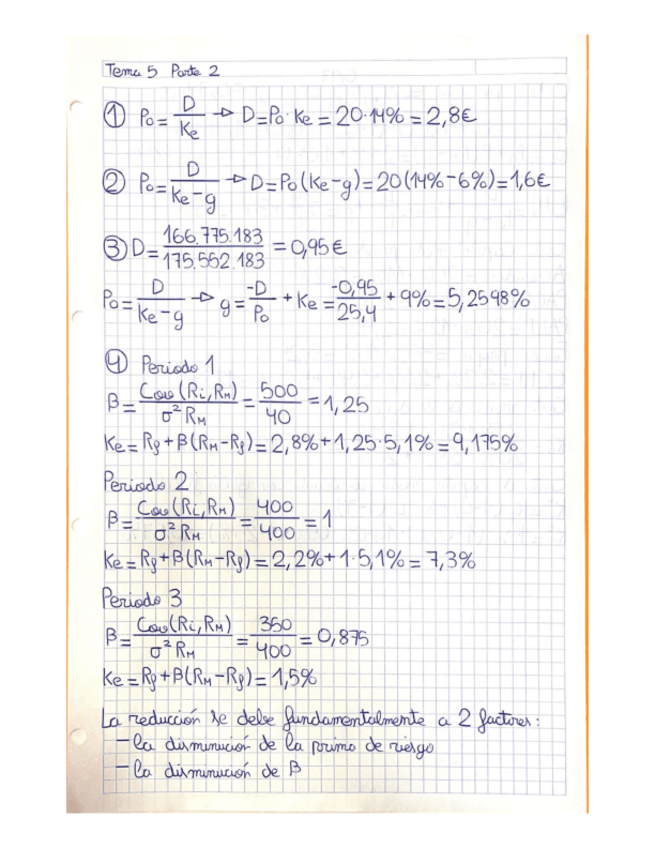 Tema 5 Parte 2
① P₀ = D / Ke → D = P₀ · Ke = 20 · 14% = 2,8€
② P₀ = D / (Ke - g) → D = P₀ (Ke - g) = 20 (14% - 6%) = 1,6€
③ D = 166.775.183 / 175.552.183 = 0,95€
P₀ = D / (Ke - g) → g = -D / P₀ + Ke = -0,95 / 25,4 + 9% = 5,2598%
④ Periodo 1
β = Cov (Ri, RM) / σ² RM = 500 / 40 = 1,25
Ke = Rf + β (RM - Rf) = 2,8% + 1,25 · 5,1% = 9,175%
Periodo 2
β = Cov (Ri, RM) / σ² RM = 400 / 400 = 1
Ke = Rf + β (RM - Rf) = 2,2% + 1 · 5,1% = 7,3%
Periodo 3
β = Cov (Ri, RM) / σ² RM = 350 / 400 = 0,875
Ke = Rf + β (RM - Rf) = 1,5%
La reducción se debe fundamentalmente a 2 factores:
- la disminución de la prima de riesgo
- la disminución de β